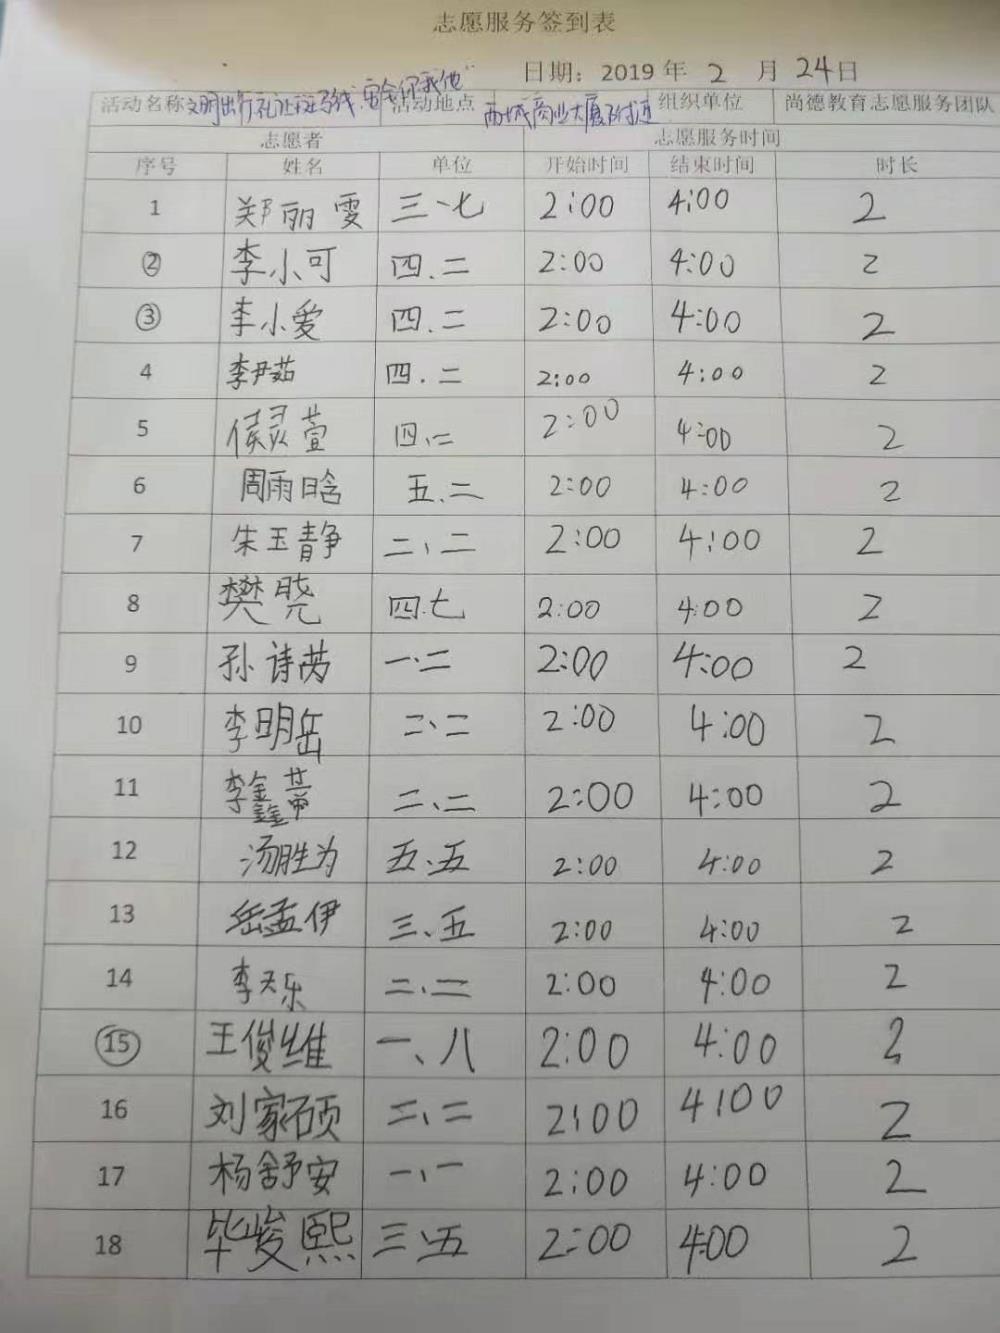 志愿服务签到表
日期：2019年 2 月 24日
活动名称 文明出行礼让斑马线,安全你我他" 活动地点 西城商业大厦附近 组织单位 尚德教育志愿服务团队
志愿者 志愿服务时间
序号 姓名 单位 开始时间 结束时间 时长
1 郑丽雯 三、七 2:00 4:00 2
② 李小可 四.二 2:00 4:00 2
③ 李小爱 四.二 2:00 4:00 2
4 李尹茹 四.二 2:00 4:00 2
5 侯灵萱 四、二 2:00 4:00 2
6 周雨晗 五.二 2:00 4:00 2
7 朱玉静 二、二 2:00 4:00 2
8 樊晓 四.七 2:00 4:00 2
9 孙诗芮 一、二 2:00 4:00 2
10 李明岳 二、二 2:00 4:00 2
11 李鑫蒂 二、二 2:00 4:00 2
12 汤胜为 五、五 2:00 4:00 2
13 岳孟伊 三、五 2:00 4:00 2
14 李天乐 二、二 2:00 4:00 2
⑮ 王俊维 一、八 2:00 4:00 2
16 刘家硕 二、二 2:00 4:00 2
17 杨舒安 一、一 2:00 4:00 2
18 毕峻熙 三、五 2:00 4:00 2